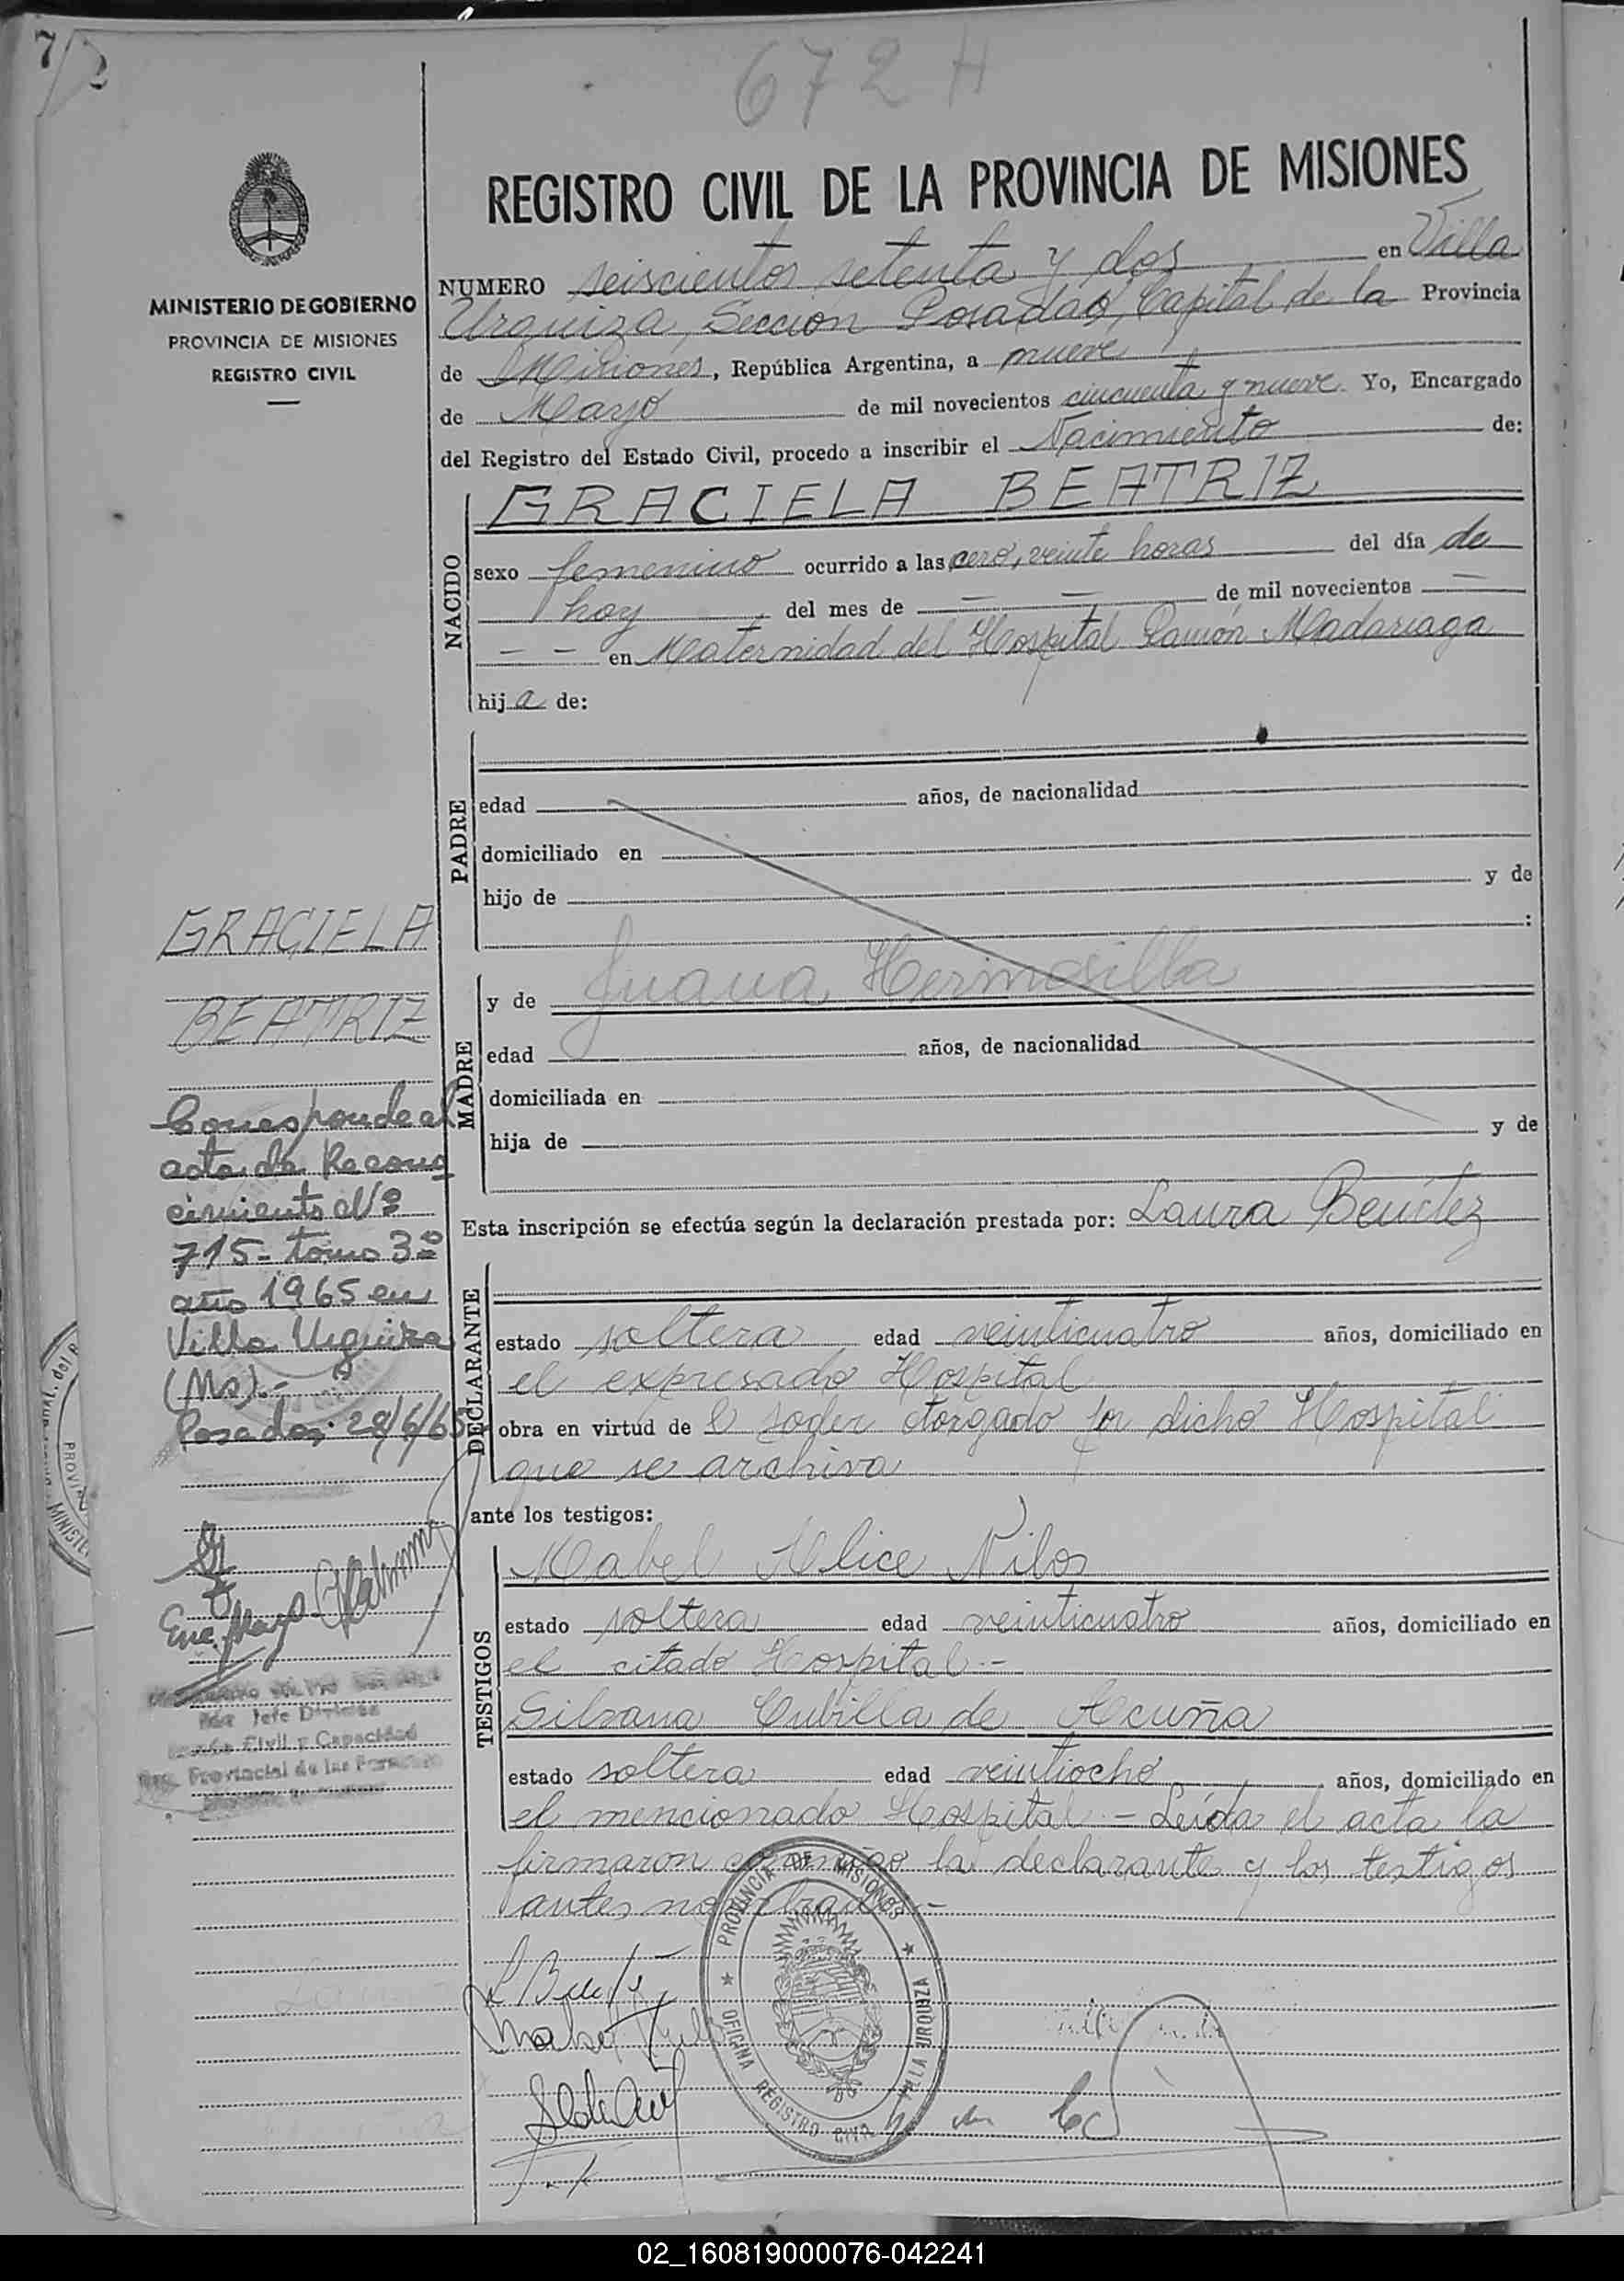 672 H
MINISTERIO DE GOBIERNO
PROVINCIA DE MISIONES
REGISTRO CIVIL
REGISTRO CIVIL DE LA PROVINCIA DE MISIONES
NUMERO seiscientos setenta y dos en Villa
Urquiza, Sección Posadas, Capital de la Provincia
de Misiones, República Argentina, a nueve
de Mayo de mil novecientos cincuenta y nueve. Yo, Encargado
del Registro del Estado Civil, procedo a inscribir el Nacimiento de:
NACIDO
GRACIELA BEATRIZ
sexo femenino ocurrido a las cero, veinte horas del día de
hoy del mes de — — de mil novecientos —
— — en Maternidad del Hospital Ramón Madariaga
hija de:
PADRE
edad años, de nacionalidad
domiciliado en
hijo de y de
:
MADRE
y de Juana Hermosilla
edad años, de nacionalidad
domiciliada en
hija de y de
Esta inscripción se efectúa según la declaración prestada por: Laura Benítez
DECLARANTE
estado soltera edad veinticuatro años, domiciliado en
el expresado Hospital
obra en virtud de el poder otorgado por dicho Hospital
que se archiva
ante los testigos:
TESTIGOS
Mabel Alice Nilos
estado soltera edad veinticuatro años, domiciliado en
el citado Hospital.-
Silvana Cubilla de Acuña
estado soltera edad veintiocho años, domiciliado en
el mencionado Hospital.- Leída el acta la
firmaron conmigo la declarante y los testigos
antes nombrados.-
GRACIELA
BEATRIZ
Corresponde al
acta de Recono
cimiento Nº
715- tomo 3º
año 1965 en
Villa Urquiza
(Ms).-
Posadas: 28/6/65
Jefe División
Civil y Capacidad
Provincial de las Personas
PROVINCIA DE MISIONES
OFICINA REGISTRO CIVIL VILLA URQUIZA
02_160819000076-042241